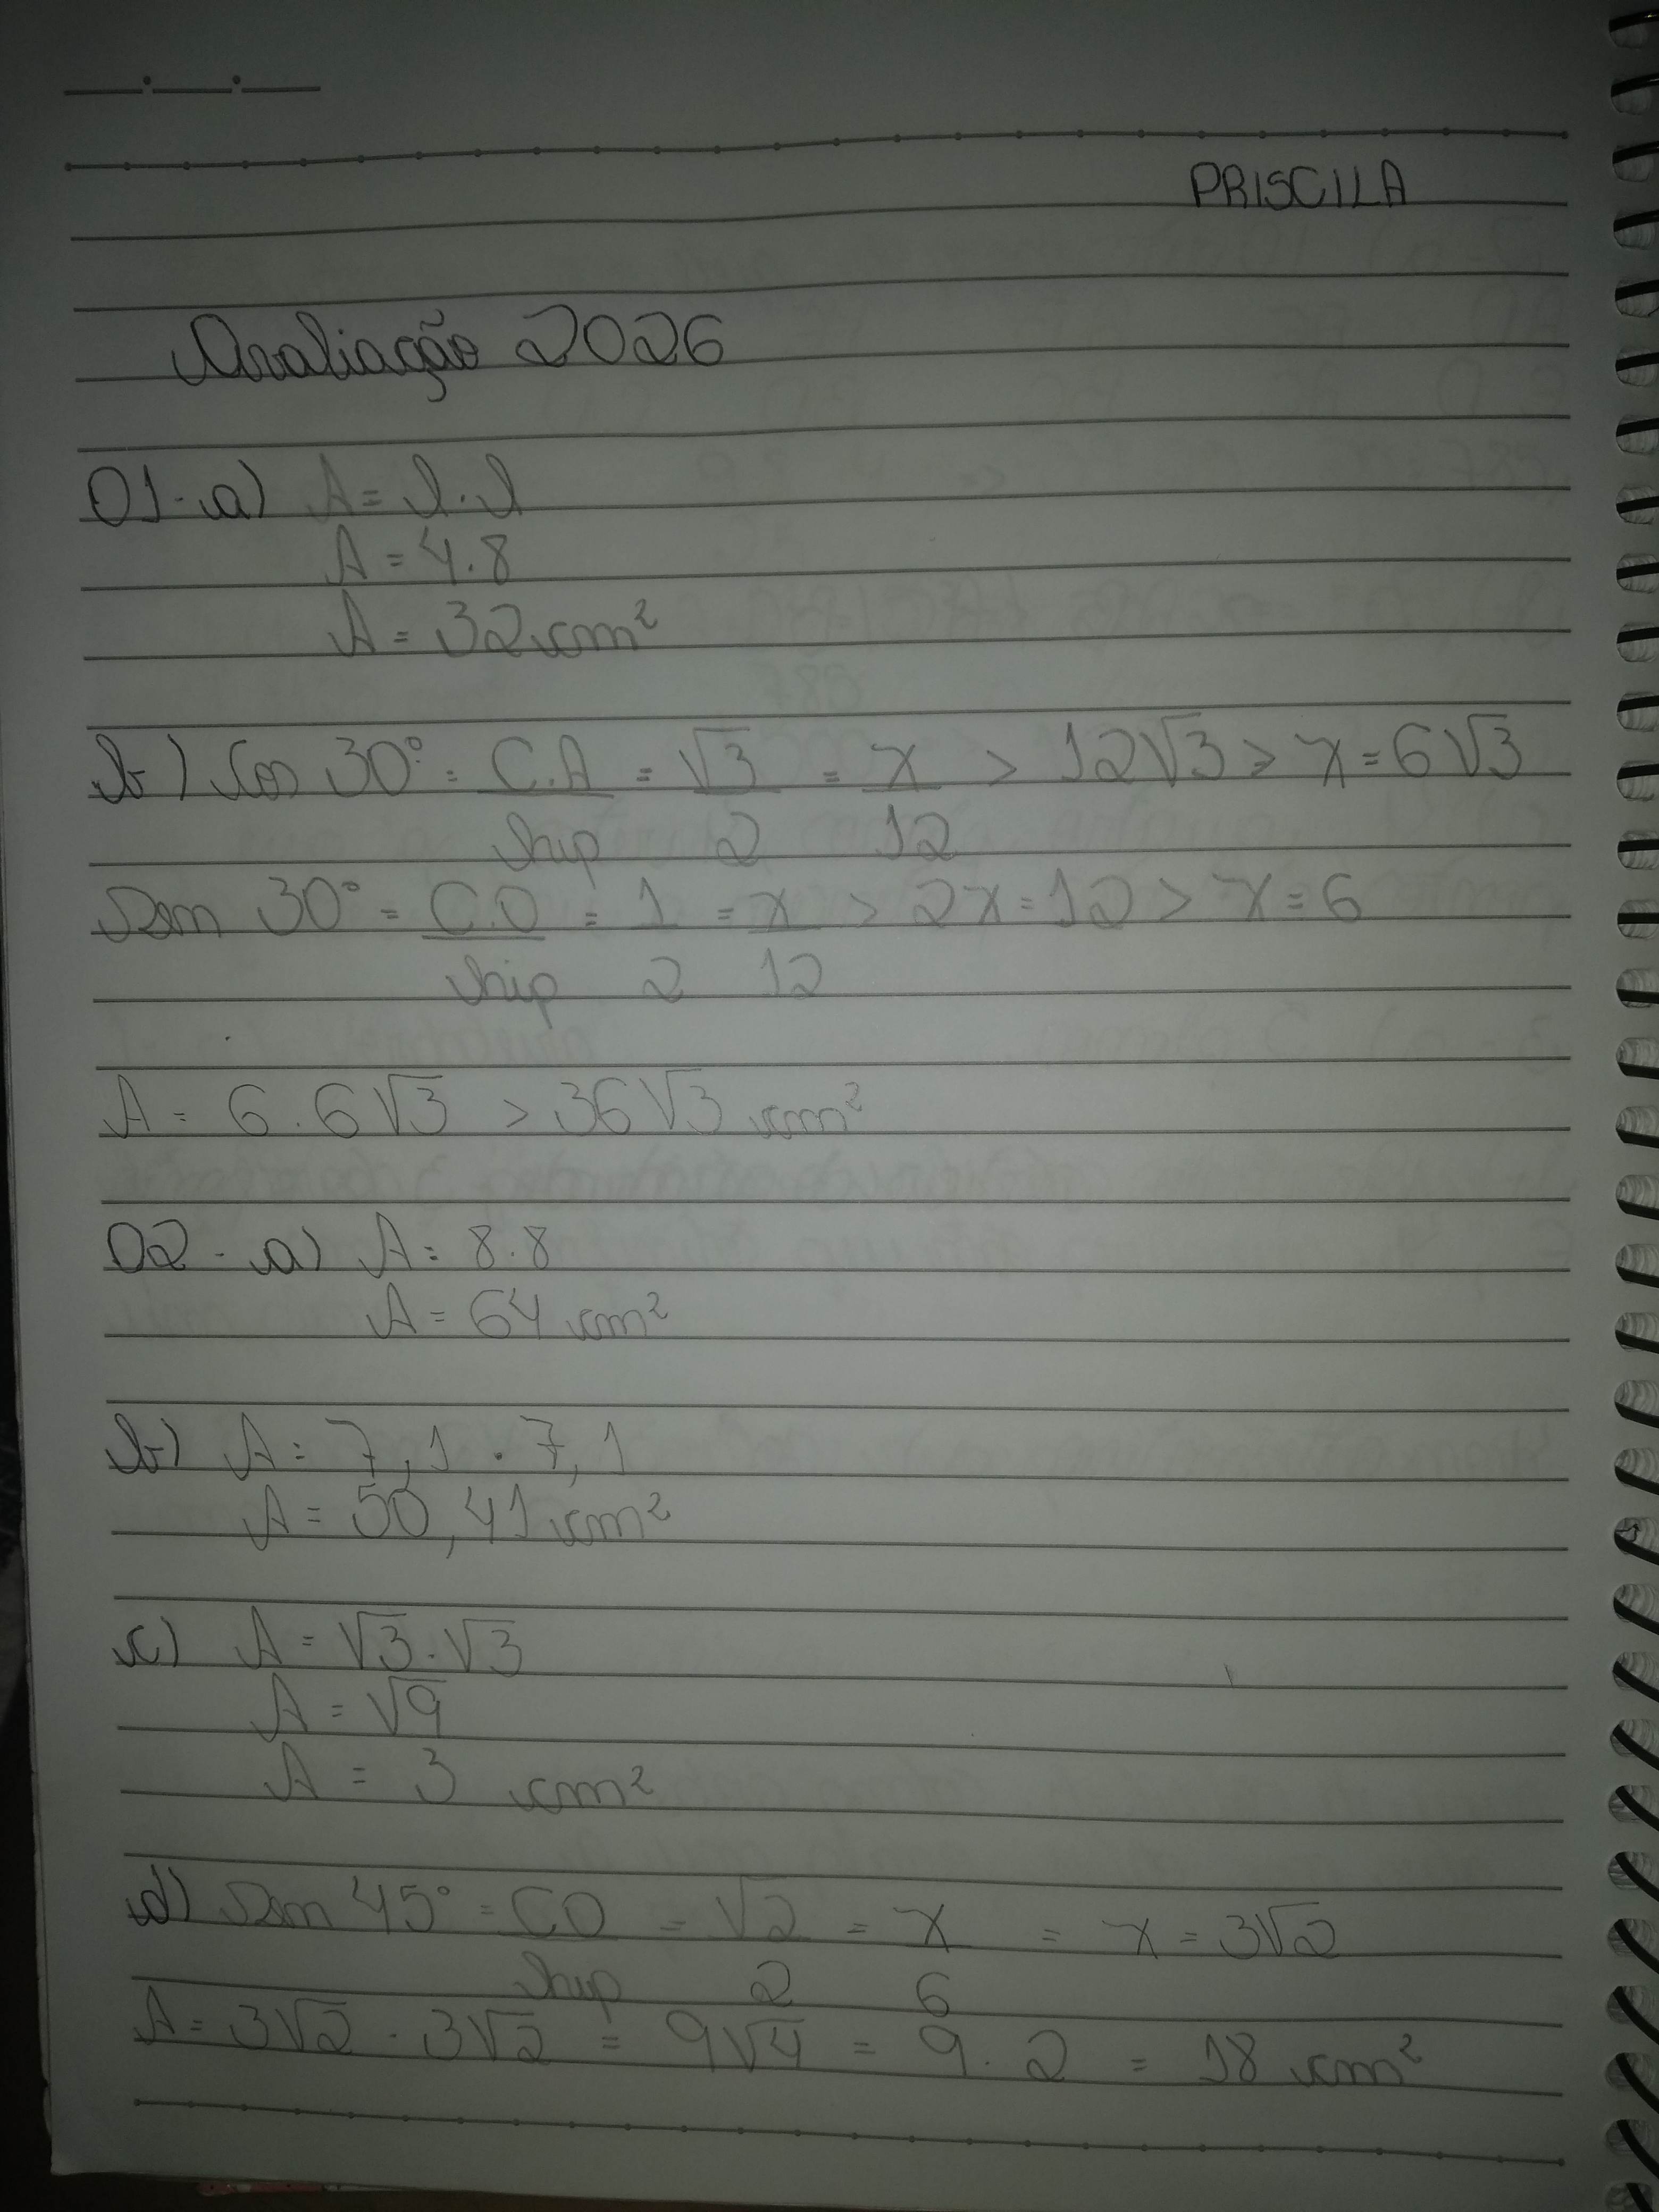 PRISCILA
Avaliação 2026
01-a) A = l.l
A = 4.8
A = 32 cm²
b) Cos 30° = C.A/hip = √3/2 = x/12 > 12√3 > x = 6√3
Sen 30° = C.O/hip = 1/2 = x/12 > 2x = 12 > x = 6
A = 6.6√3 > 36√3 cm²
02 - a) A = 8.8
A = 64 cm²
b) A = 7,1 . 7,1
A = 50,41 cm²
c) A = √3.√3
A = √9
A = 3 cm²
d) Sen 45° = CO/hip = √2/2 = x/6 = x = 3√2
A = 3√2 . 3√2 = 9√4 = 9.2 = 18 cm²